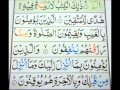 ذٰلِكَ الْكِتٰبُ لَا رَيْبَ ۛ فِيْهِ ۛ
هُدًى لِّلْمُتَّقِيْنَ الَّذِيْنَ يُؤْمِنُوْنَ
بِالْغَيْبِ وَيُقِيْمُوْنَ الصَّلٰوةَ وَمِمَّا
رَزَقْنٰهُمْ يُنْفِقُوْنَ وَالَّذِيْنَ يُؤْمِنُوْنَ
بِمَآ اُنْزِلَ اِلَيْكَ وَمَآ اُنْزِلَ
مِنْ قَبْلِكَ وَبِالْاٰخِرَةِ هُمْ يُوْقِنُوْنَ